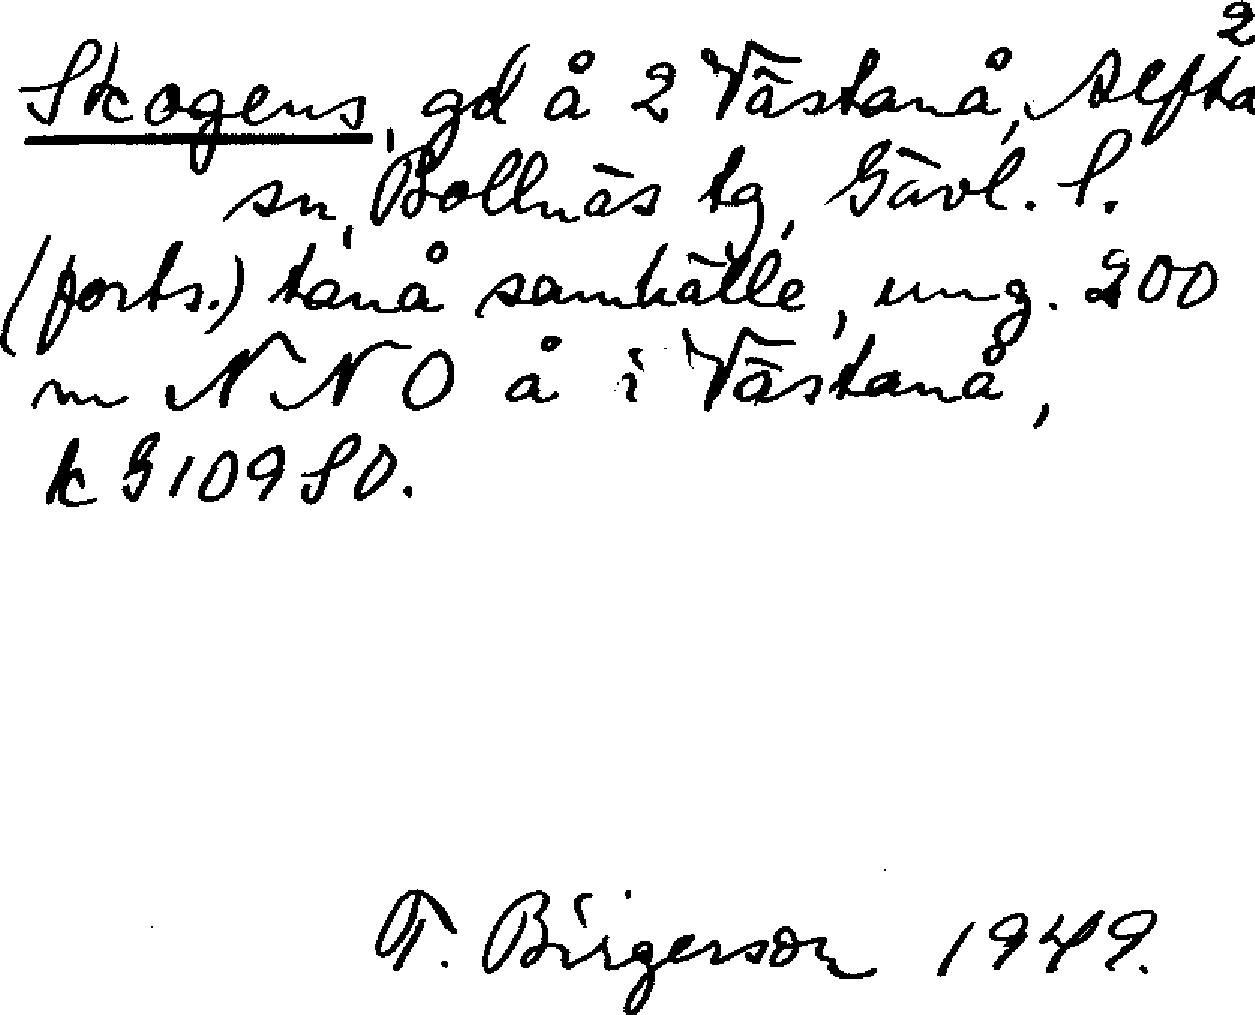 2
Skogens, gd å 2 Västanå, Alfta
sn, Bollnäs tg, Gävl. l.
(forts.) tanå samhälle, ung. 200
m NNO å i Västanå,
k G 109 SO.
T. Birgerson 1949.